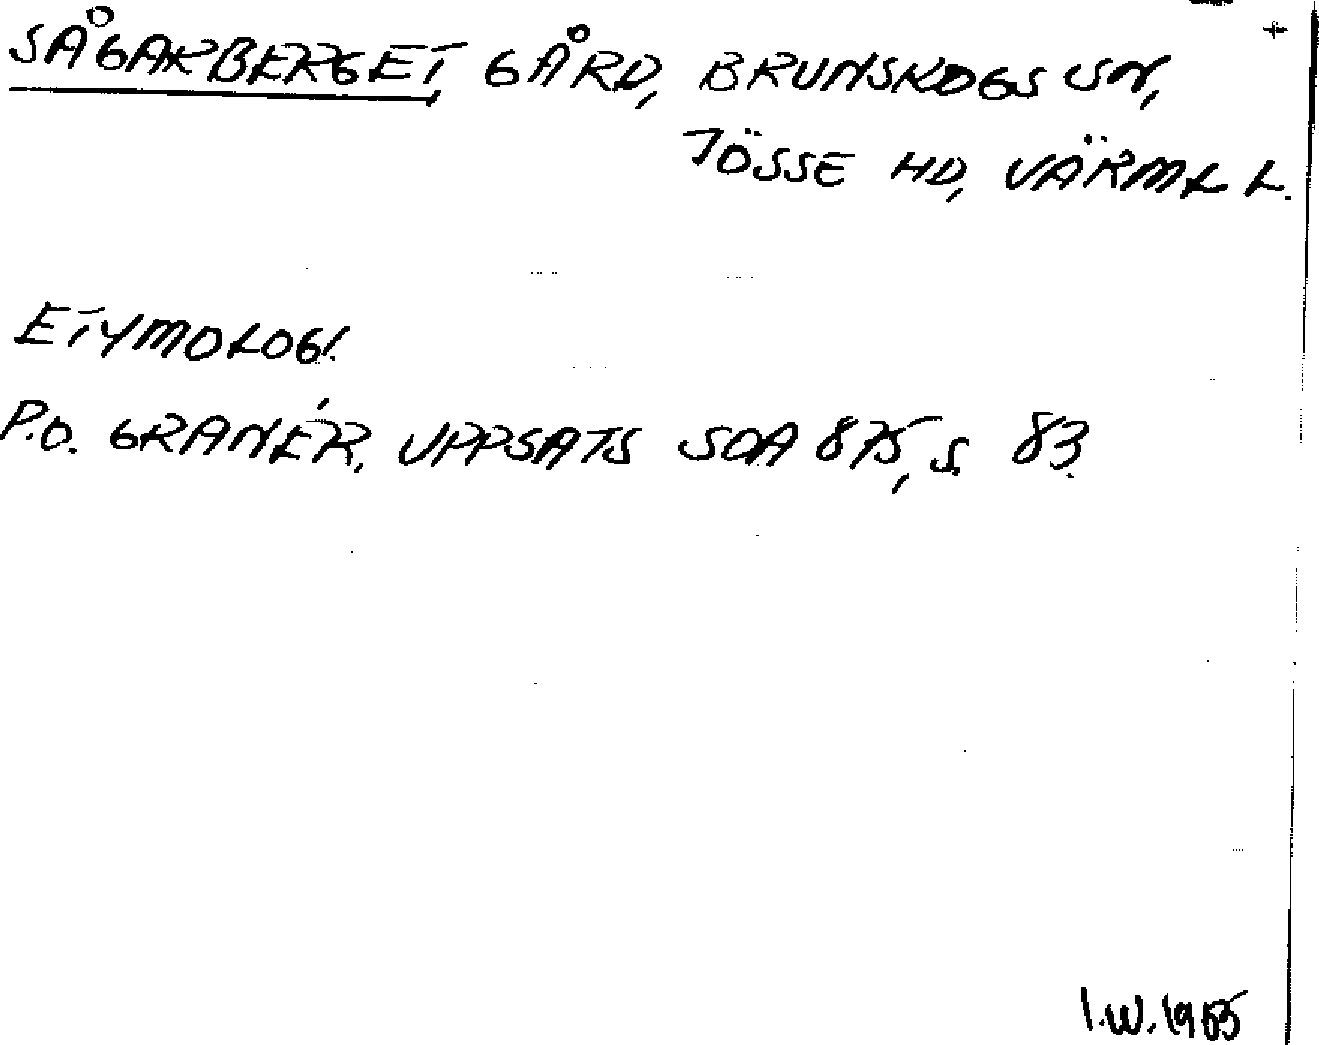 +
SÅGARBERGET, GÅRD, BRUNSKOGS SN,
JÖSSE HD, VÄRML L.
ETYMOLOGI.
P.O. GRANÉR, UPPSATS SOA 875, S. 83.
I.W. 1955